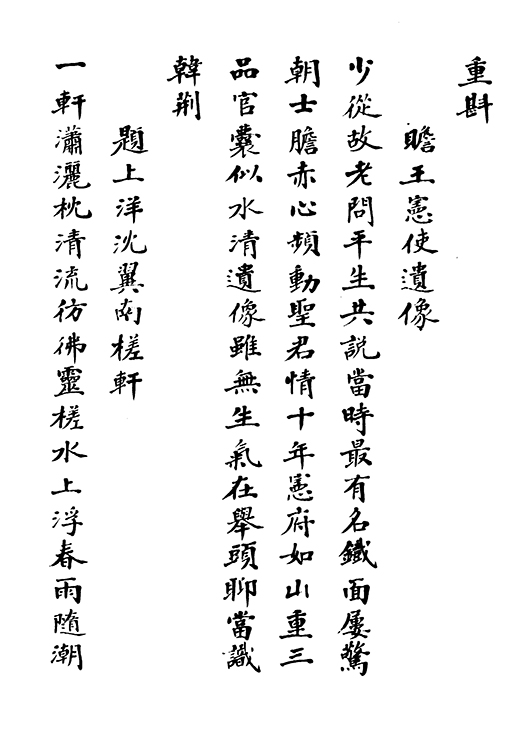 重斟
瞻王憲使遺像
少從故老問平生共說當時最有名鐵面屢驚
朝士膽赤心頻動聖君情十年憲府如山重三
品官囊似水清遺像雖無生氣在舉頭聊當識
韓荆
題上洋沈翼南槎軒
一軒瀟灑枕清流彷彿靈槎水上浮春雨随潮